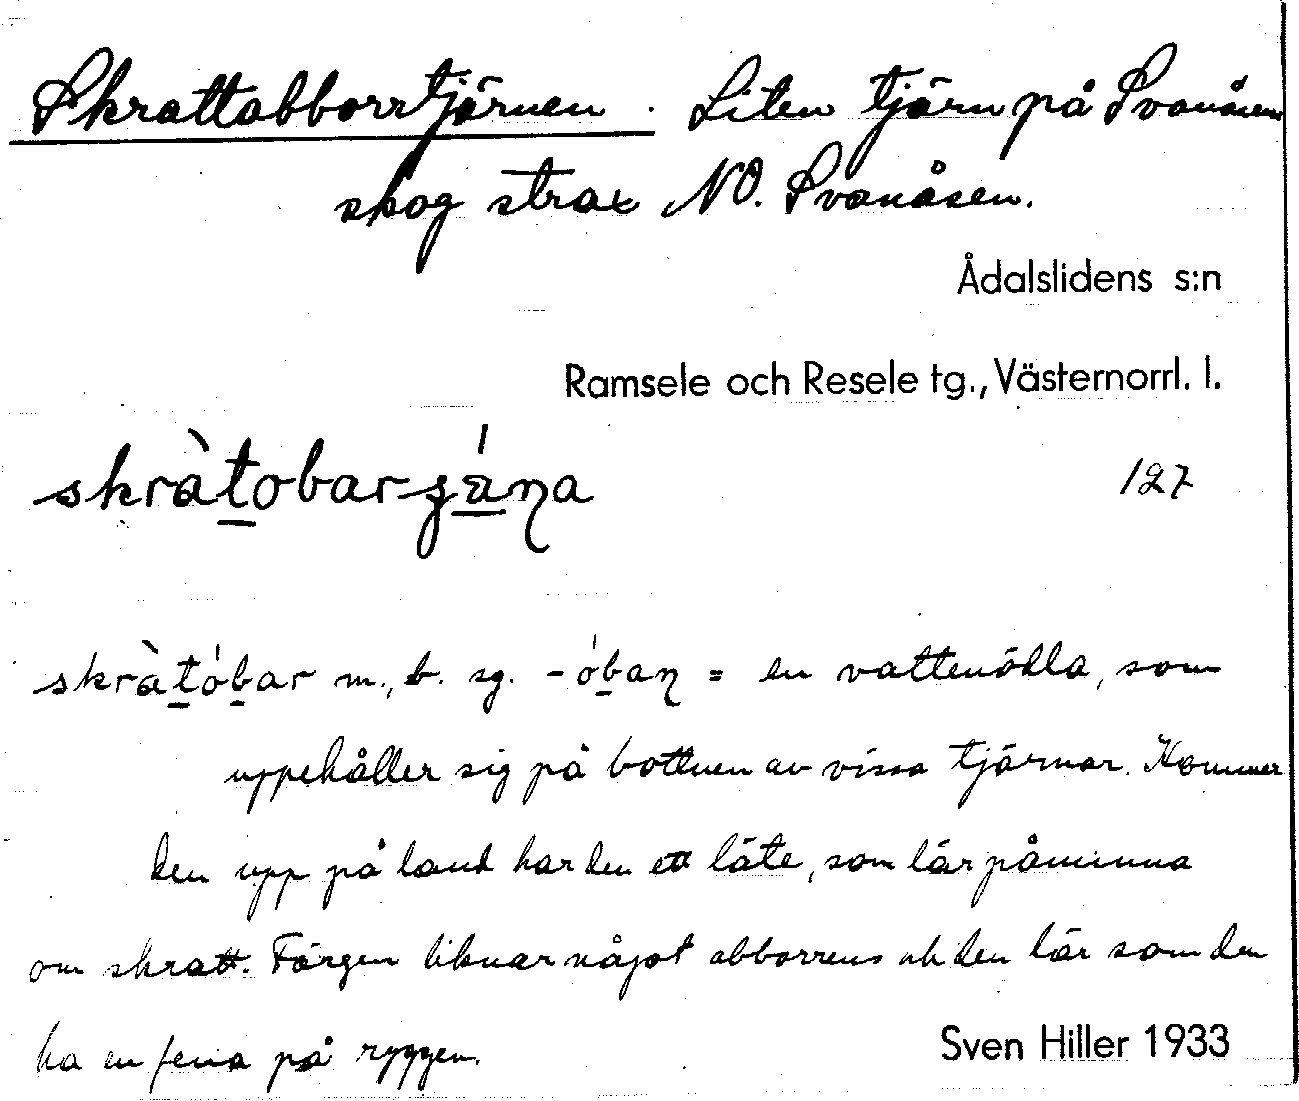 Skrattabborrtjärnen. Liten tjärn på Svanåsens
skog strax NO. Svanåsen.
Ådalslidens s:n
Ramsele och Resele tg., Västernorrl. l.
skràtobarʒä́ɳa
127
skràtóbar m., b. sg. -óbaɳ = en vattenödla, som
uppehåller sig på bottnen av vissa tjärnar. Kommer
den upp på land har den ett läte, som lär påminna
om skratt. Färgen liknar något abborrens och den lär som den
ha en fena på ryggen.
Sven Hiller 1933